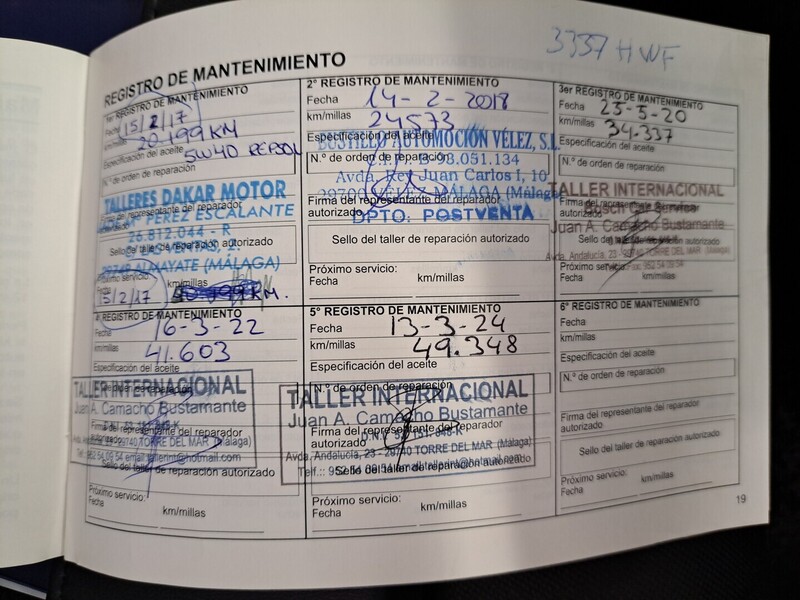 3337 HWF
REGISTRO DE MANTENIMIENTO
1er REGISTRO DE MANTENIMIENTO
Fecha 15/2/17
km/millas 20.199 KM
Especificación del aceite 5W40
N.º de orden de reparación
TALLERES DAKAR MOTOR
Firma del representante del reparador
PEREZ ESCALANTE
autorizado
26.812.044 - R
Sello del taller de reparación autorizado
29749 ALMAYATE (MÁLAGA)
Próximo servicio:
Fecha 15/2/17 km/millas KM.
2º REGISTRO DE MANTENIMIENTO
Fecha 14-2-2018
km/millas 24573
Especificación del aceite
BUSTILLO AUTOMOCIÓN VÉLEZ, S.L.
N.º de orden de reparación
Avda. Rey Juan Carlos I, 10
29700 VÉLEZ-MÁLAGA (Málaga)
Firma del representante del reparador
autorizado
DPTO. POSTVENTA
Sello del taller de reparación autorizado
Próximo servicio:
Fecha km/millas
3er REGISTRO DE MANTENIMIENTO
Fecha 23-5-20
km/millas 34.337
Especificación del aceite
N.º de orden de reparación
TALLER INTERNACIONAL
Firma del representante del reparador
Bosch Car Service
autorizado
Juan A. Camacho Bustamante
Avda. Andalucía, 23 - 29740 TORRE DEL MAR (Málaga)
Próximo servicio:
Fecha km/millas
REGISTRO DE MANTENIMIENTO
Fecha 16-3-22
km/millas 41.603
Especificación del aceite
TALLER INTERNACIONAL
Juan A. Camacho Bustamante
Firma del representante del reparador
autorizado
29740 TORRE DEL MAR (Málaga)
Sello del taller de reparación autorizado
Próximo servicio:
Fecha km/millas
5º REGISTRO DE MANTENIMIENTO
Fecha 13-3-24
km/millas 49.348
Especificación del aceite
N.º de orden de reparación
TALLER INTERNACIONAL
Juan A. Camacho Bustamante
Firma del representante del reparador
autorizado
Avda. Andalucía, 23 - 29740 TORRE DEL MAR (Málaga)
Sello del taller de reparación autorizado
Próximo servicio:
Fecha km/millas
6º REGISTRO DE MANTENIMIENTO
Fecha
km/millas
Especificación del aceite
N.º de orden de reparación
Firma del representante del reparador
autorizado
Sello del taller de reparación autorizado
Próximo servicio:
Fecha km/millas
19